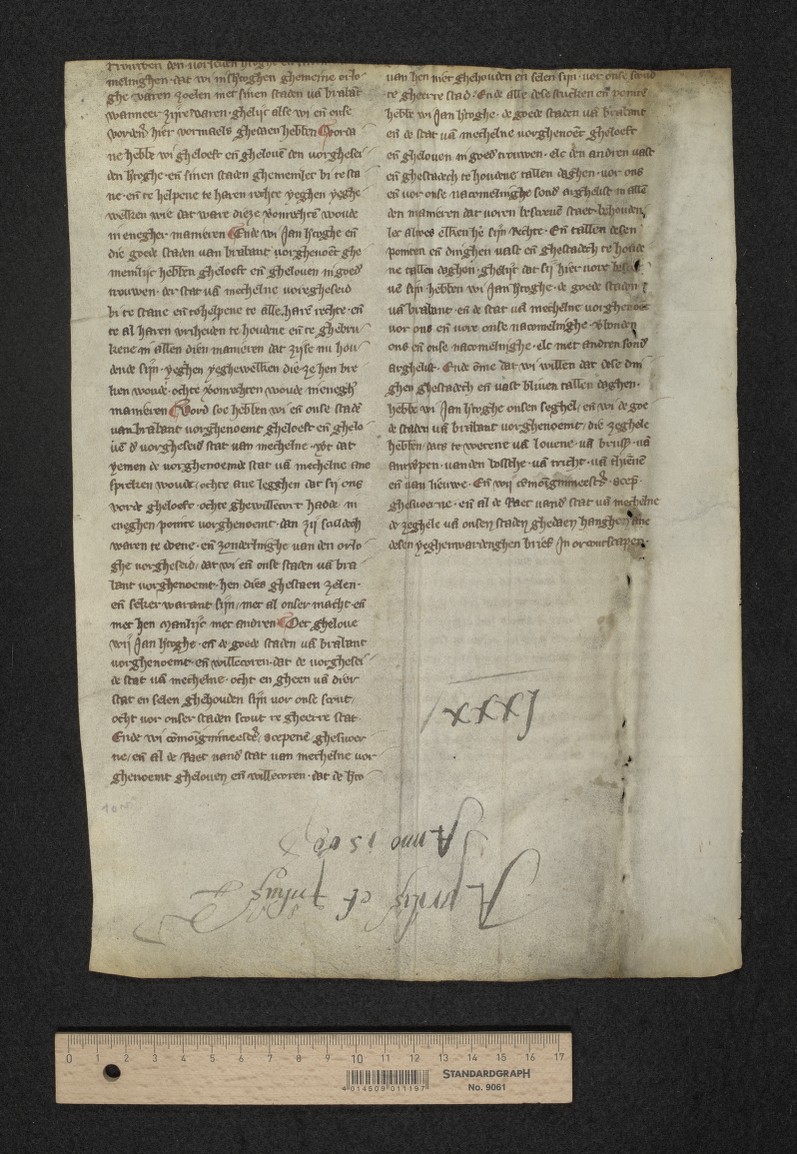 trouwen den vorseiden
melinghen · dat wi in shtoghen ghemeine orlo
ghe varen zoelen met sinen staden uā brabāt
wanneer zijre waren · ghelijc alse wi en̄ onse
vorders hier vormaels ghedaen hebben Vorda
ne hebbe wi gheloeft en̄ ghelouē den vorghesei
den htoghe · en̄ sinen staden ghemeinlec bi te sta
ne · en̄ te helpene te haren rechte yeghen yeghe
welken wie dat ware dieze vōrechtē woude
in enegher manieren Ende wi Jan htoghe en̄
die goede staden van brabant vorghenoēt ghe
meinlijc hebben gheloeft en̄ ghelouen in goed
trouwen · der stat uā mechelne voregheseid
bi te stane en̄ te helpene te alle harē rechte · en̄
te al haren vriheiden te houdene en̄ te ghebru
kene in allen dien manieren dat zijse nu hou
dende sijn · yeghen yeghewelken die ze hen bre
ken woude · ochte vōrechten woude in enegh
manieren Vord soe hebben wi en̄ onse stadē
van brabant vorghenoemt gheloeft en̄ ghelo
uē d vorgheseid stat van mechelne · wt dat
yemen de vorghenoemde stat uā mechelne ane
spreken woude / ochte aue legghen dat sij ons
vorde gheloeft · ochte ghewillecort hadde in
eneghen pointe vorghenoemt · dan zij sculdech
waren te doene · en̄ zonderlinghe van den orlo
ghe vorgheseid / dat wi en̄ onse staden uā bra
bant vorghenoemt · hen dies ghestaen zelen ·
en̄ seker warant sijn / met al onser macht · en̄
met hen manlijc met andren Oec gheloue
wij Jan htoghe · en̄ de goede staden uā brabant
vorghenoemt · en̄ willecoren · dat de vorghesei
de stat uā mechelne · ocht en gheen uā dier
stat en selen ghehouden sijn vor onse scout /
ocht vor onser staden scout te gheerre stat ·
Ende wi comoigmineestē / scepenē ghesuoer
ne / en̄ al de Raet vand stat van mechelne vor
ghenoemt ghelouen en̄ willecoren · dat de hto
van hen niet ghehouden en selen sijn · vor onse scoud
te gheerre stad · Ende alle dese stucken en̄
hebbē wi Jan htoghe · de goede staden uā brabant
en̄ de stat uā mechelne vorghenoēt gheloeft
en̄ ghelouen in goed trouwen · elc den andren vast
en̄ ghestadech te houdene tallen daghen · vor ons
en̄ vor onse nacomelinghe sond arghelist in allē
den manieren dat voren bescreuē staet · behouden
lec altoes elken hē sijn Rechte · En̄ tallen desen
pointen en̄ dinghen vast en̄ ghestadech te houde
ne tallen daghen · ghelijc dat sij hier vore bescre
uē sijn hebben wi Jan htoghe · de goede staden
uā brabant · en̄ de stat uā mechelne vorghenoēt
vor ons en̄ vore onse nacomelinghe · vbonden
ons en̄ onse nacomelinghe · elc met andren sond
arghelist · Ende ōme dat wi willen dat dese din
ghen ghestadech en̄ vast bliuen tallen daghen ·
hebbe wi Jan htoghe onsen seghel / en̄ wi de goe
de staden uā brabant vorghenoemt / die zeghele
hebben · dats te wetene uā louene · uā bruss · uā
antwpen · van den bossche · uā tricht · uā thienē
en̄ van leuwe · En̄ wij comoigmineestē · scep ·
ghesuoerne · en̄ al de Raet vand stat uā mechelne
de zeghele uā onsen staden ghedaen hanghen ane
desen yeghenwardenghen brief In orcontscapen ·
lxxxj
Anno 15
Aprilis et Junius
0 1 2 3 4 5 6 7 8 9 10 11 12 13 14 15 16 17
4 014509 011197
STANDARDGRAPH
No. 9061